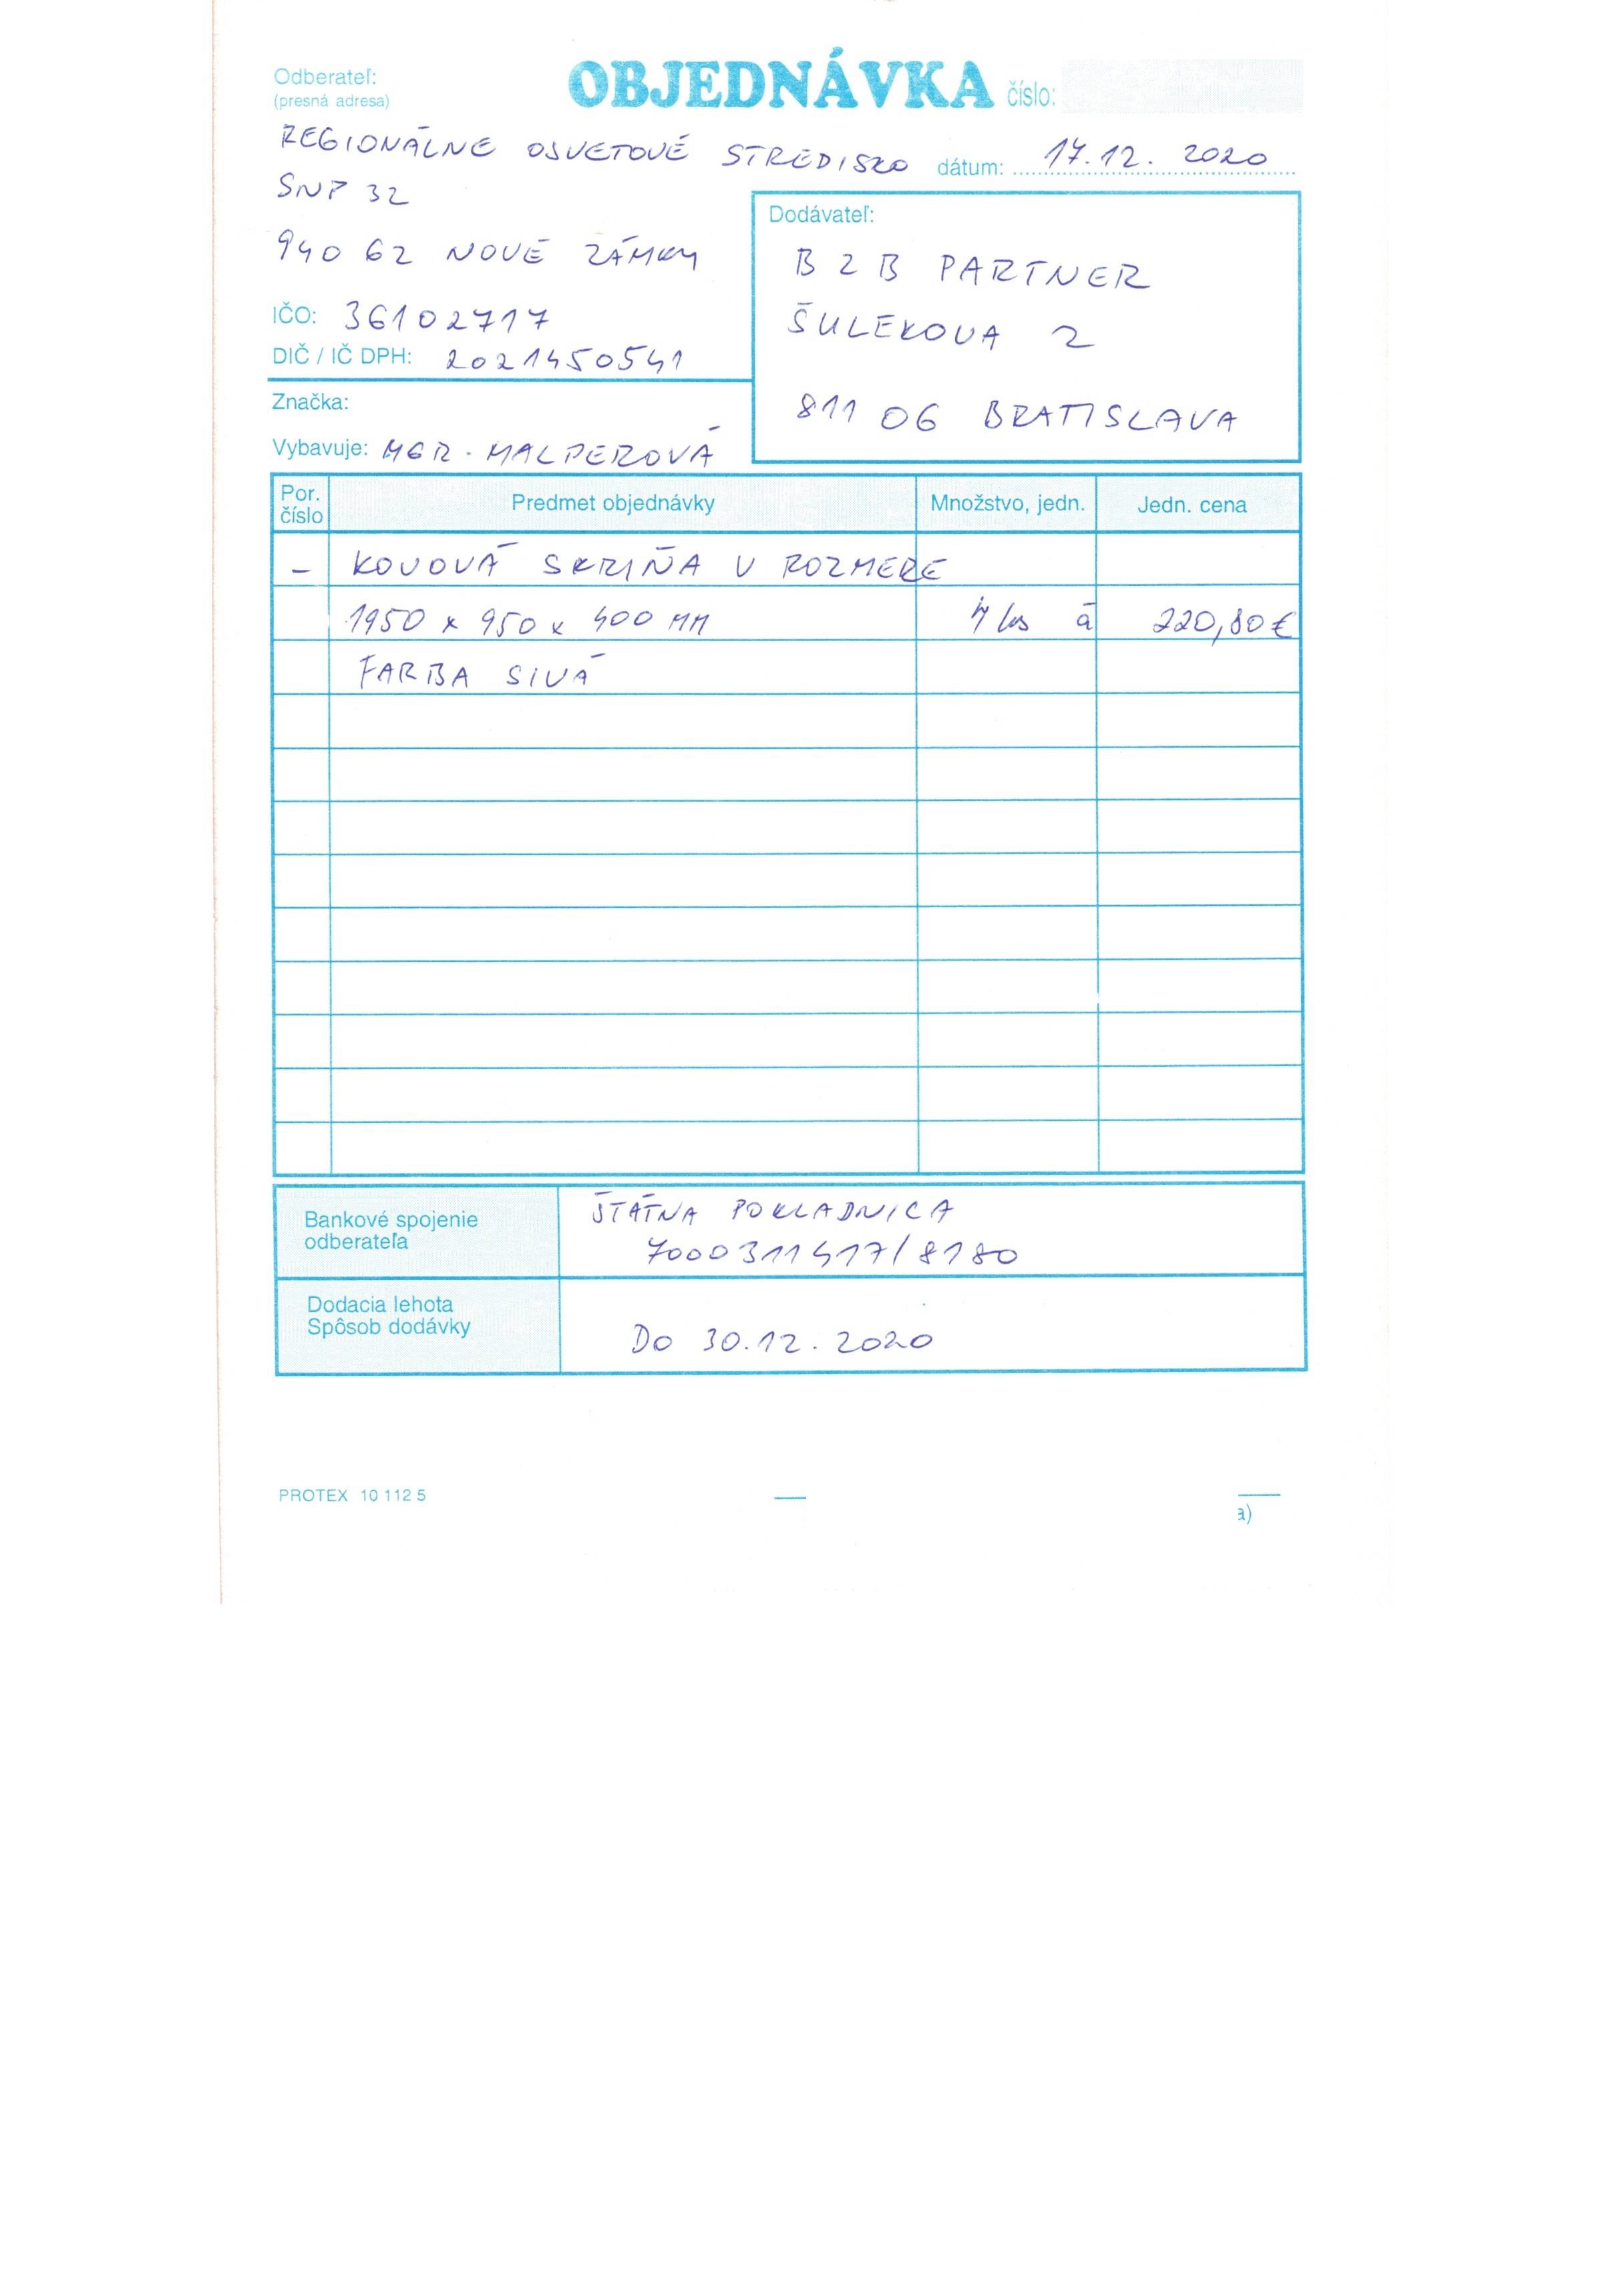 Odberateľ:
(presná adresa)
OBJEDNÁVKA číslo:
REGIONÁLNE OSVETOVÉ STREDISKO
dátum: 17.12. 2020
SNP 32
940 62 NOVÉ ZÁMKY
IČO: 36102717
DIČ / IČ DPH: 2021450541
Značka:
Vybavuje: MGR. MALPEROVÁ
Dodávateľ:
B2B PARTNER
ŠULEKOVA 2
811 06 BRATISLAVA
Por. číslo Predmet objednávky Množstvo, jedn. Jedn. cena
– KOVOVÁ SKRIŇA V ROZMERE
1950 x 950 x 400 MM ks á 220,80 €
FARBA SIVÁ
Bankové spojenie
odberateľa
ŠTÁTNA POKLADNICA
7000311417/8180
Dodacia lehota
Spôsob dodávky
DO 30.12.2020
PROTEX 10 112 5
a)